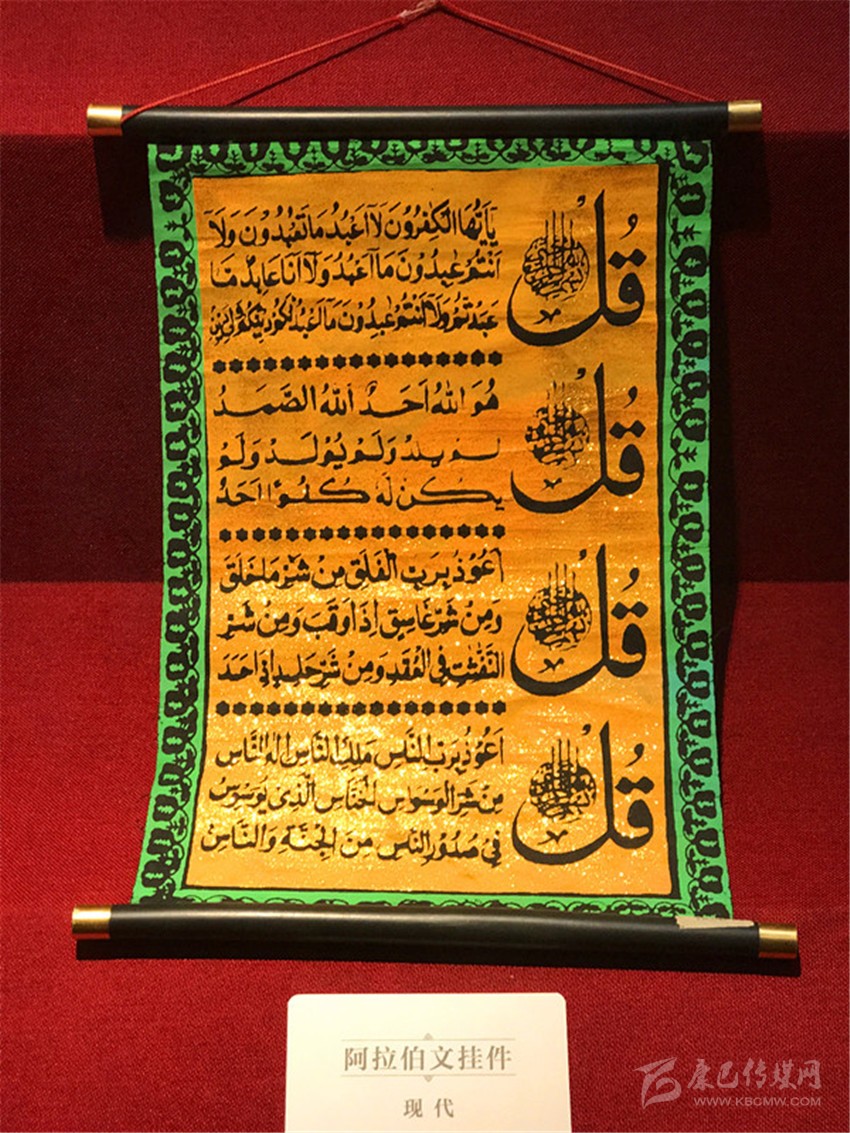 قُلْ
يٰاَيُّهَا الْكٰفِرُوْنَ لَآ اَعْبُدُ مَا تَعْبُدُوْنَ وَلَآ
اَنْتُمْ عٰبِدُوْنَ مَآ اَعْبُدُ وَلَآ اَنَا عَابِدٌ مَّا
عَبَدْتُّمْ وَلَآ اَنْتُمْ عٰبِدُوْنَ مَآ اَعْبُدُ لَكُمْ دِيْنُكُمْ وَلِيَ دِيْنِ
قُلْ
هُوَ اللّٰهُ اَحَدٌ اَللّٰهُ الصَّمَدُ
لَمْ يَلِدْ وَلَمْ يُوْلَدْ وَلَمْ
يَكُنْ لَهُ كُفُوًا اَحَدُ
قُلْ
اَعُوْذُ بِرَبِّ الْفَلَقِ مِنْ شَرِّ مَا خَلَقَ
وَمِنْ شَرِّ غَاسِقٍ اِذَا وَقَبَ وَمِنْ شَرِّ
النَّفّٰثٰتِ فِى الْعُقَدِ وَمِنْ شَرِّ
قُلْ
اَعُوْذُ بِرَبِّ النَّاسِ مَلِكِ النَّاسِ اِلٰهِ النَّاسِ
مِنْ شَرِّ الْوَسْوَاسِ الْخَنَّاسِ الَّذِىْ يُوَسْوِسُ
فِىْ صُدُوْرِ النَّاسِ مِنَ الْجِنَّةِ وَالنَّاسِ
阿拉伯文挂件
现代
康巴传媒网
WWW.KBCMW.COM